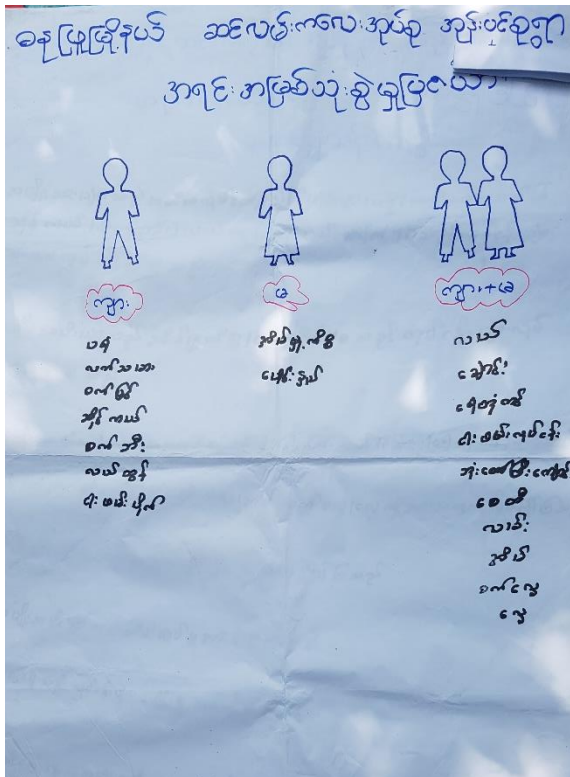 ဓနုဖြူမြို့နယ် ဆင်လမ်းကလေးအုပ်စု အုန်းပင်စုရွာ
အရင်းအမြစ်သုံးစွဲမှုပြဇယား
ကျား
မ
ကျား+မ
ပရဲ
လက်သမား
စက်ပြင်
ဆိုင်ကယ်
စက်ဘီး
လယ်ထွန်
ငါးဖမ်းပိုက်
အိမ်မှုကိစ္စ
မီးဖိုချောင်
လယ်
ချောင်း
ရေတွင်း
ငါးဖမ်းလုပ်ငန်း
ဘုန်းတော်ကြီးကျောင်း
စေတီ
လမ်း
အိမ်
စက်လှေ
လှေ